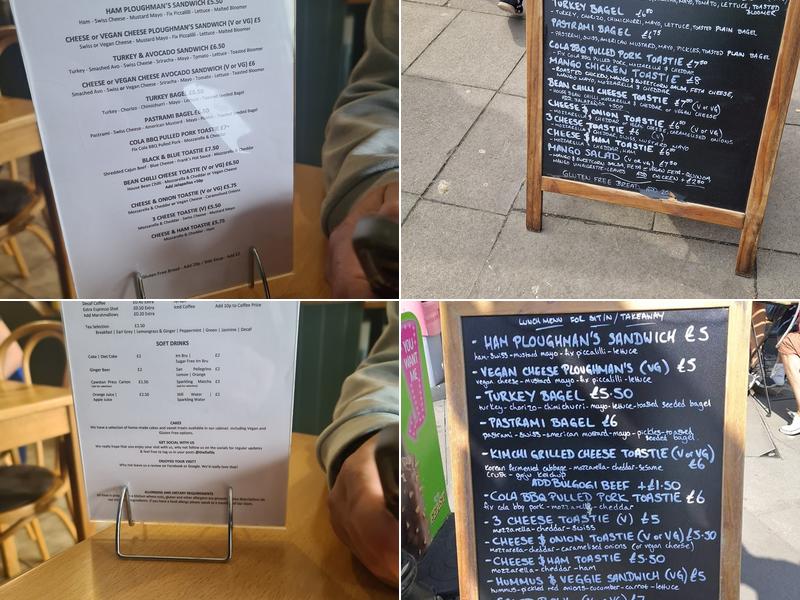 HAM PLOUGHMAN'S SANDWICH £5.50
Ham - Swiss Cheese - Mustard Mayo - Fix Piccalilli - Lettuce - Malted Bloomer
CHEESE or VEGAN CHEESE PLOUGHMAN'S SANDWICH (V or VG) £5
Swiss or Vegan Cheese - Mustard Mayo - Fix Piccalilli - Lettuce - Malted Bloomer
TURKEY & AVOCADO SANDWICH £6.50
Turkey - Smashed Avo - Swiss Cheese - Sriracha - Mayo - Tomato - Lettuce - Toasted Bloomer
CHEESE or VEGAN CHEESE AVOCADO SANDWICH (V or VG) £6
Smashed Avo - Swiss or Vegan Cheese - Sriracha - Mayo - Tomato - Lettuce - Toasted Bloomer
TURKEY BAGEL £6.50
Turkey - Chorizo - Chimichurri - Mayo - Lettuce - Toasted Seeded Bagel
PASTRAMI BAGEL £6.50
Pastrami - Swiss Cheese - American Mustard - Mayo - Pickles - Toasted Seeded Bagel
COLA BBQ PULLED PORK TOASTIE £7
Fix Cola BBQ Pulled Pork - Mozzarella & Cheddar
BLACK & BLUE TOASTIE £7.50
Shredded Cajun Beef - Blue Cheese - Frank's Hot Sauce - Mozzarella - Cheddar
BEAN CHILLI CHEESE TOASTIE (V or VG) £6.50
House Bean Chilli - Mozzarella & Cheddar or Vegan Cheese
Add Jalapeños +50p
CHEESE & ONION TOASTIE (V or VG) £5.75
Mozzarella & Cheddar or Vegan Cheese - Caramelised Onions
3 CHEESE TOASTIE (V) £5.50
Mozzarella & Cheddar - Swiss Cheese - Mustard Mayo
CHEESE & HAM TOASTIE £5.75
Mozzarella & Cheddar - Ham
Gluten Free Bread - Add 50p / Side Soup - Add £2
TOASTED BLOOMER
TURKEY BAGEL
- TURKEY, CHORIZO, CHIMICHURRI, MAYO, LETTUCE, TOASTED PLAIN BAGEL
PASTRAMI BAGEL £6.75
- PASTRAMI, SWISS, AMERICAN MUSTARD, MAYO, PICKLES, TOASTED PLAIN BAGEL
COLA BBQ PULLED PORK TOASTIE £7.50
- FIX COLA BBQ PULLED PORK, MOZZARELLA & CHEDDAR
MANGO CHICKEN TOASTIE £8
- ROASTED CHICKEN, MANGO & SWEETCORN SALSA, FETA CHEESE,
MANGO MAYO, MOZZARELLA & CHEDDAR
BEAN CHILLI CHEESE TOASTIE £7.00 (V or VG)
- HOUSE BEAN CHILLI, MOZZARELLA & CHEDDAR or VEGAN CHEESE
CHEESE & ONION TOASTIE £6 (V or VG)
- MOZZARELLA & CHEDDAR or VEGAN CHEESE, CARAMELISED ONIONS
3 CHEESE TOASTIE £6 (V)
- MOZZARELLA & CHEDDAR, SWISS, MUSTARD MAYO
CHEESE & HAM TOASTIE
- MOZZARELLA & CHEDDAR, HAM
MANGO SALAD (V or VG) £7.50
GLUTEN FREE BREAD
Decaf Coffee
Extra Espresso Shot £0.50 Extra
Add Marshmallows £0.20 Extra
Iced Coffee Add 10p to Coffee Price
Tea Selection £1.50
Breakfast | Earl Grey | Lemongrass & Ginger | Peppermint | Green | Jasmine | Decaf
SOFT DRINKS
Coke | Diet Coke £2 Irn Bru | Sugar Free Irn Bru £2
Ginger Beer £2 San Pellegrino Lemon | Orange £2
Cawston Press Carton £1.50 Sparkling Matcha £3
Orange Juice | Apple Juice £2.50 Still Water | Sparkling Water £2
CAKES
We have a selection of home made cakes and sweet treats available in our cabinet, including Vegan and Gluten Free options.
GET SOCIAL WITH US
We really hope that you enjoy your visit with us, why not follow us on the socials for regular updates
& feel free to tag us in your posts
ENJOYED YOUR VISIT?
Why not leave us a review on Facebook or Google. We'd really love that!
ALLERGENS AND DIETARY REQUIREMENTS
YOU WANT ME
LUNCH MENU FOR SIT IN / TAKEAWAY
- HAM PLOUGHMAN'S SANDWICH £5
ham-swiss-mustard mayo-fix piccalilli-lettuce
- VEGAN CHEESE PLOUGHMAN'S (VG) £5
vegan cheese-mustard mayo-fix piccalilli-lettuce
- TURKEY BAGEL £5.50
turkey-chorizo-chimichurri-mayo-lettuce-toasted seeded bagel
- PASTRAMI BAGEL £6
pastrami-swiss-american mustard-mayo-pickles-toasted seeded bagel
- KIMCHI GRILLED CHEESE TOASTIE (V or VG) £6
korean fermented cabbage-mozzarella-cheddar-sesame crust-gnju ketchup
ADD BULGOGI BEEF +£1.50
- COLA BBQ PULLED PORK TOASTIE £6
fix cola bbq pork-mozzarella-cheddar
- 3 CHEESE TOASTIE (V) £5
mozzarella-cheddar-swiss
- CHEESE & ONION TOASTIE (V or VG) £5.50
mozzarella-cheddar-caramelised onions (or vegan cheese)
- CHEESE & HAM TOASTIE £5.50
mozzarella-cheddar-ham
- HUMMUS & VEGGIE SANDWICH (VG) £5
hummus-pickled red onions-cucumber-carrot-lettuce